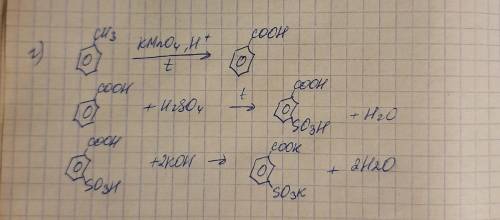 2) CH3 KMnO4, H+ t COOH
COOH + H2SO4 t COOH SO3H + H2O
COOH SO3H +2KOH → COOK SO3K + 2H2O